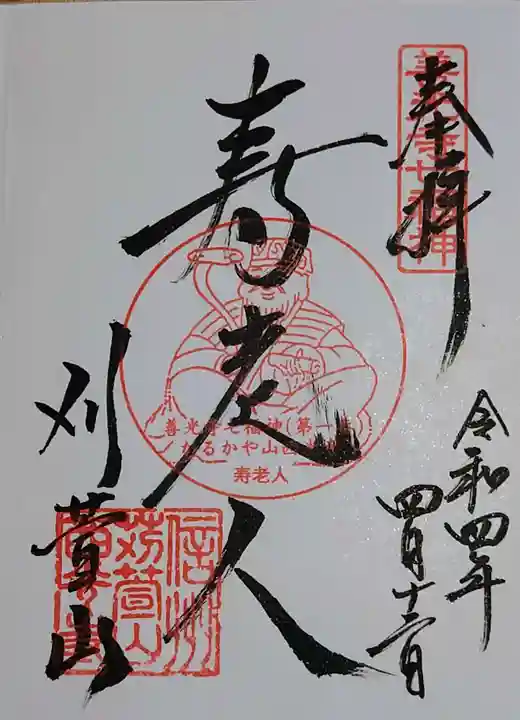 奉拝
善光寺七福神
令和四年
四月十三日
寿老人
善光寺七福神(第一番)
かるかや山西光寺
寿老人
刈萱山
信州
苅萱山